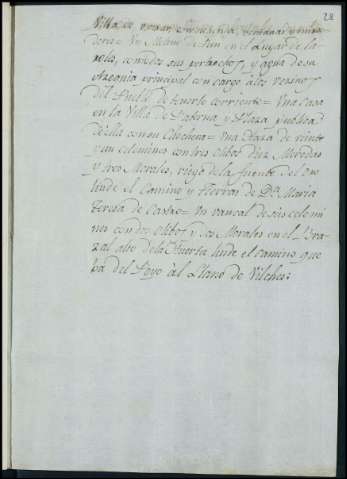 28
Villa de
deria = Un Molino de Pan en el Lugar de la
rolo, con todos sus pertrechos, y agua de su
Azequia principal con cargo a los vezinos
del Pueblo de tenerlo corriente = Una Casa
en la Villa de Paterna, y Plaza publica
de ella con su Cochera = Una Haza de veinte
y un celemines con tres olibos diez Almendros
y tres Morales, riego de la fuente del
linde el Camino y tierras de Da. Maria
Teresa de Castro = Un vancal de seis celemi
nes con dos olibos y dos Morales en el Bra
zal alto de la Huerta linde el camino que
ba del Poyo al Llano de Vilches: